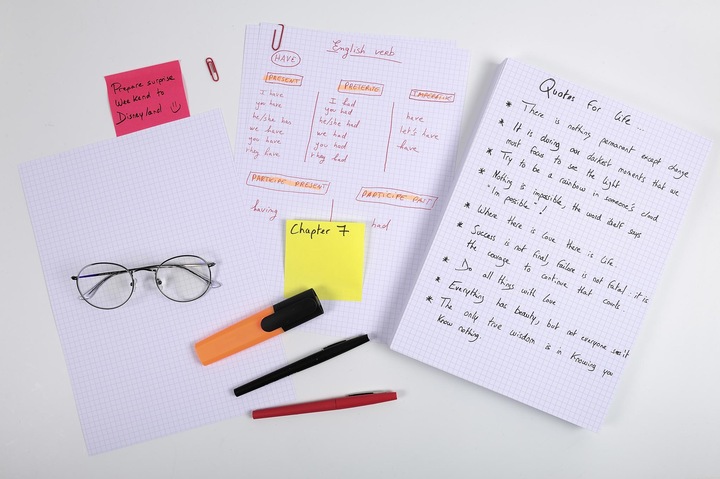 Prepare surprise
Weekend to
Disneyland
English verb
HAVE
PRESENT
I have
you have
he/she has
we have
you have
they have
PRETERITE
I had
you had
he/she had
we had
you had
they had
IMPERATIVE
have
let's have
have
PARTICIPE PRESENT
having
PARTICIPE PAST
had
Chapter 7
Quotes For Life ...
* There is nothing permanent except change
* It is during our darkest moments that we
most focus to see the light
* Try to be a rainbow in someone's cloud
* Nothing is impossible, the word itself says
"I'm possible"!
* Where there is love there is life
* Success is not final, failure is not fatal: it is
the courage to continue that counts
* Do all things with love
* Everything has beauty, but not everyone sees it
* The only true wisdom is in knowing you
know nothing.